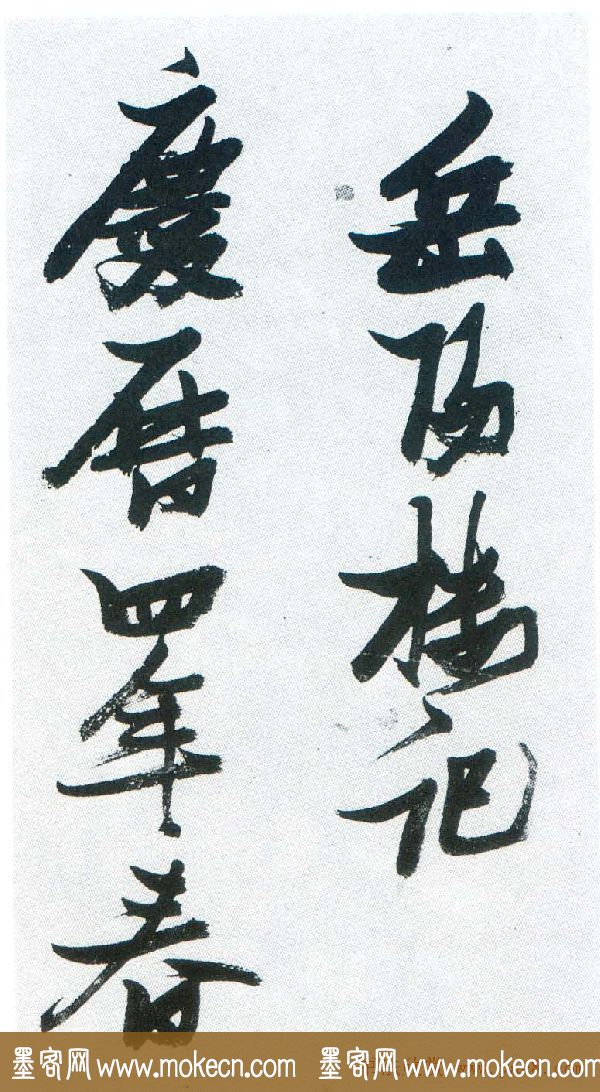 岳阳楼记
慶曆四年春
墨客网 www.mokecn.com 墨客网 www.mokecn.com